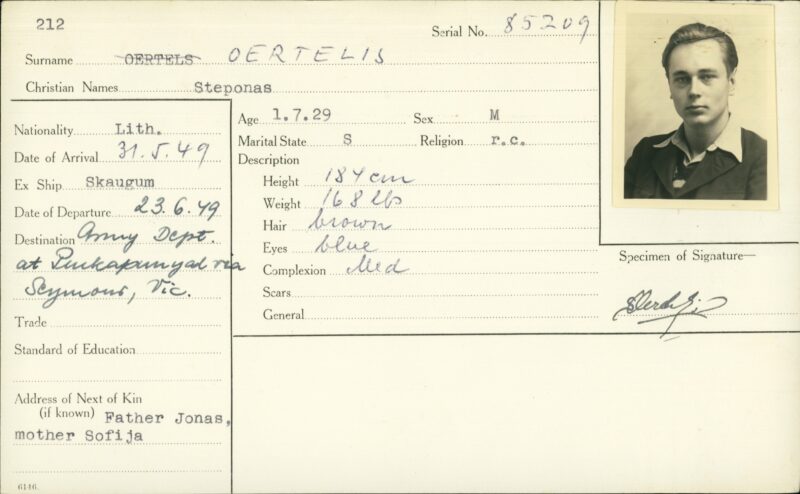 212
Serial No. 85209
Surname OERTELS OERTELIS
Christian Names Steponas
Nationality Lith.
Date of Arrival 31.5.49
Ex Ship Skaugum
Date of Departure 23.6.49
Destination Army Dept.
at Puckapunyal via
Seymour, Vic.
Trade
Standard of Education
Address of Next of Kin
(if known) Father Jonas,
mother Sofija
6146.
Age 1.7.29 Sex M
Marital State S Religion r.c.
Description
Height 184 cm
Weight 168 lbs
Hair brown
Eyes blue
Complexion Med
Scars
General
Specimen of Signature—